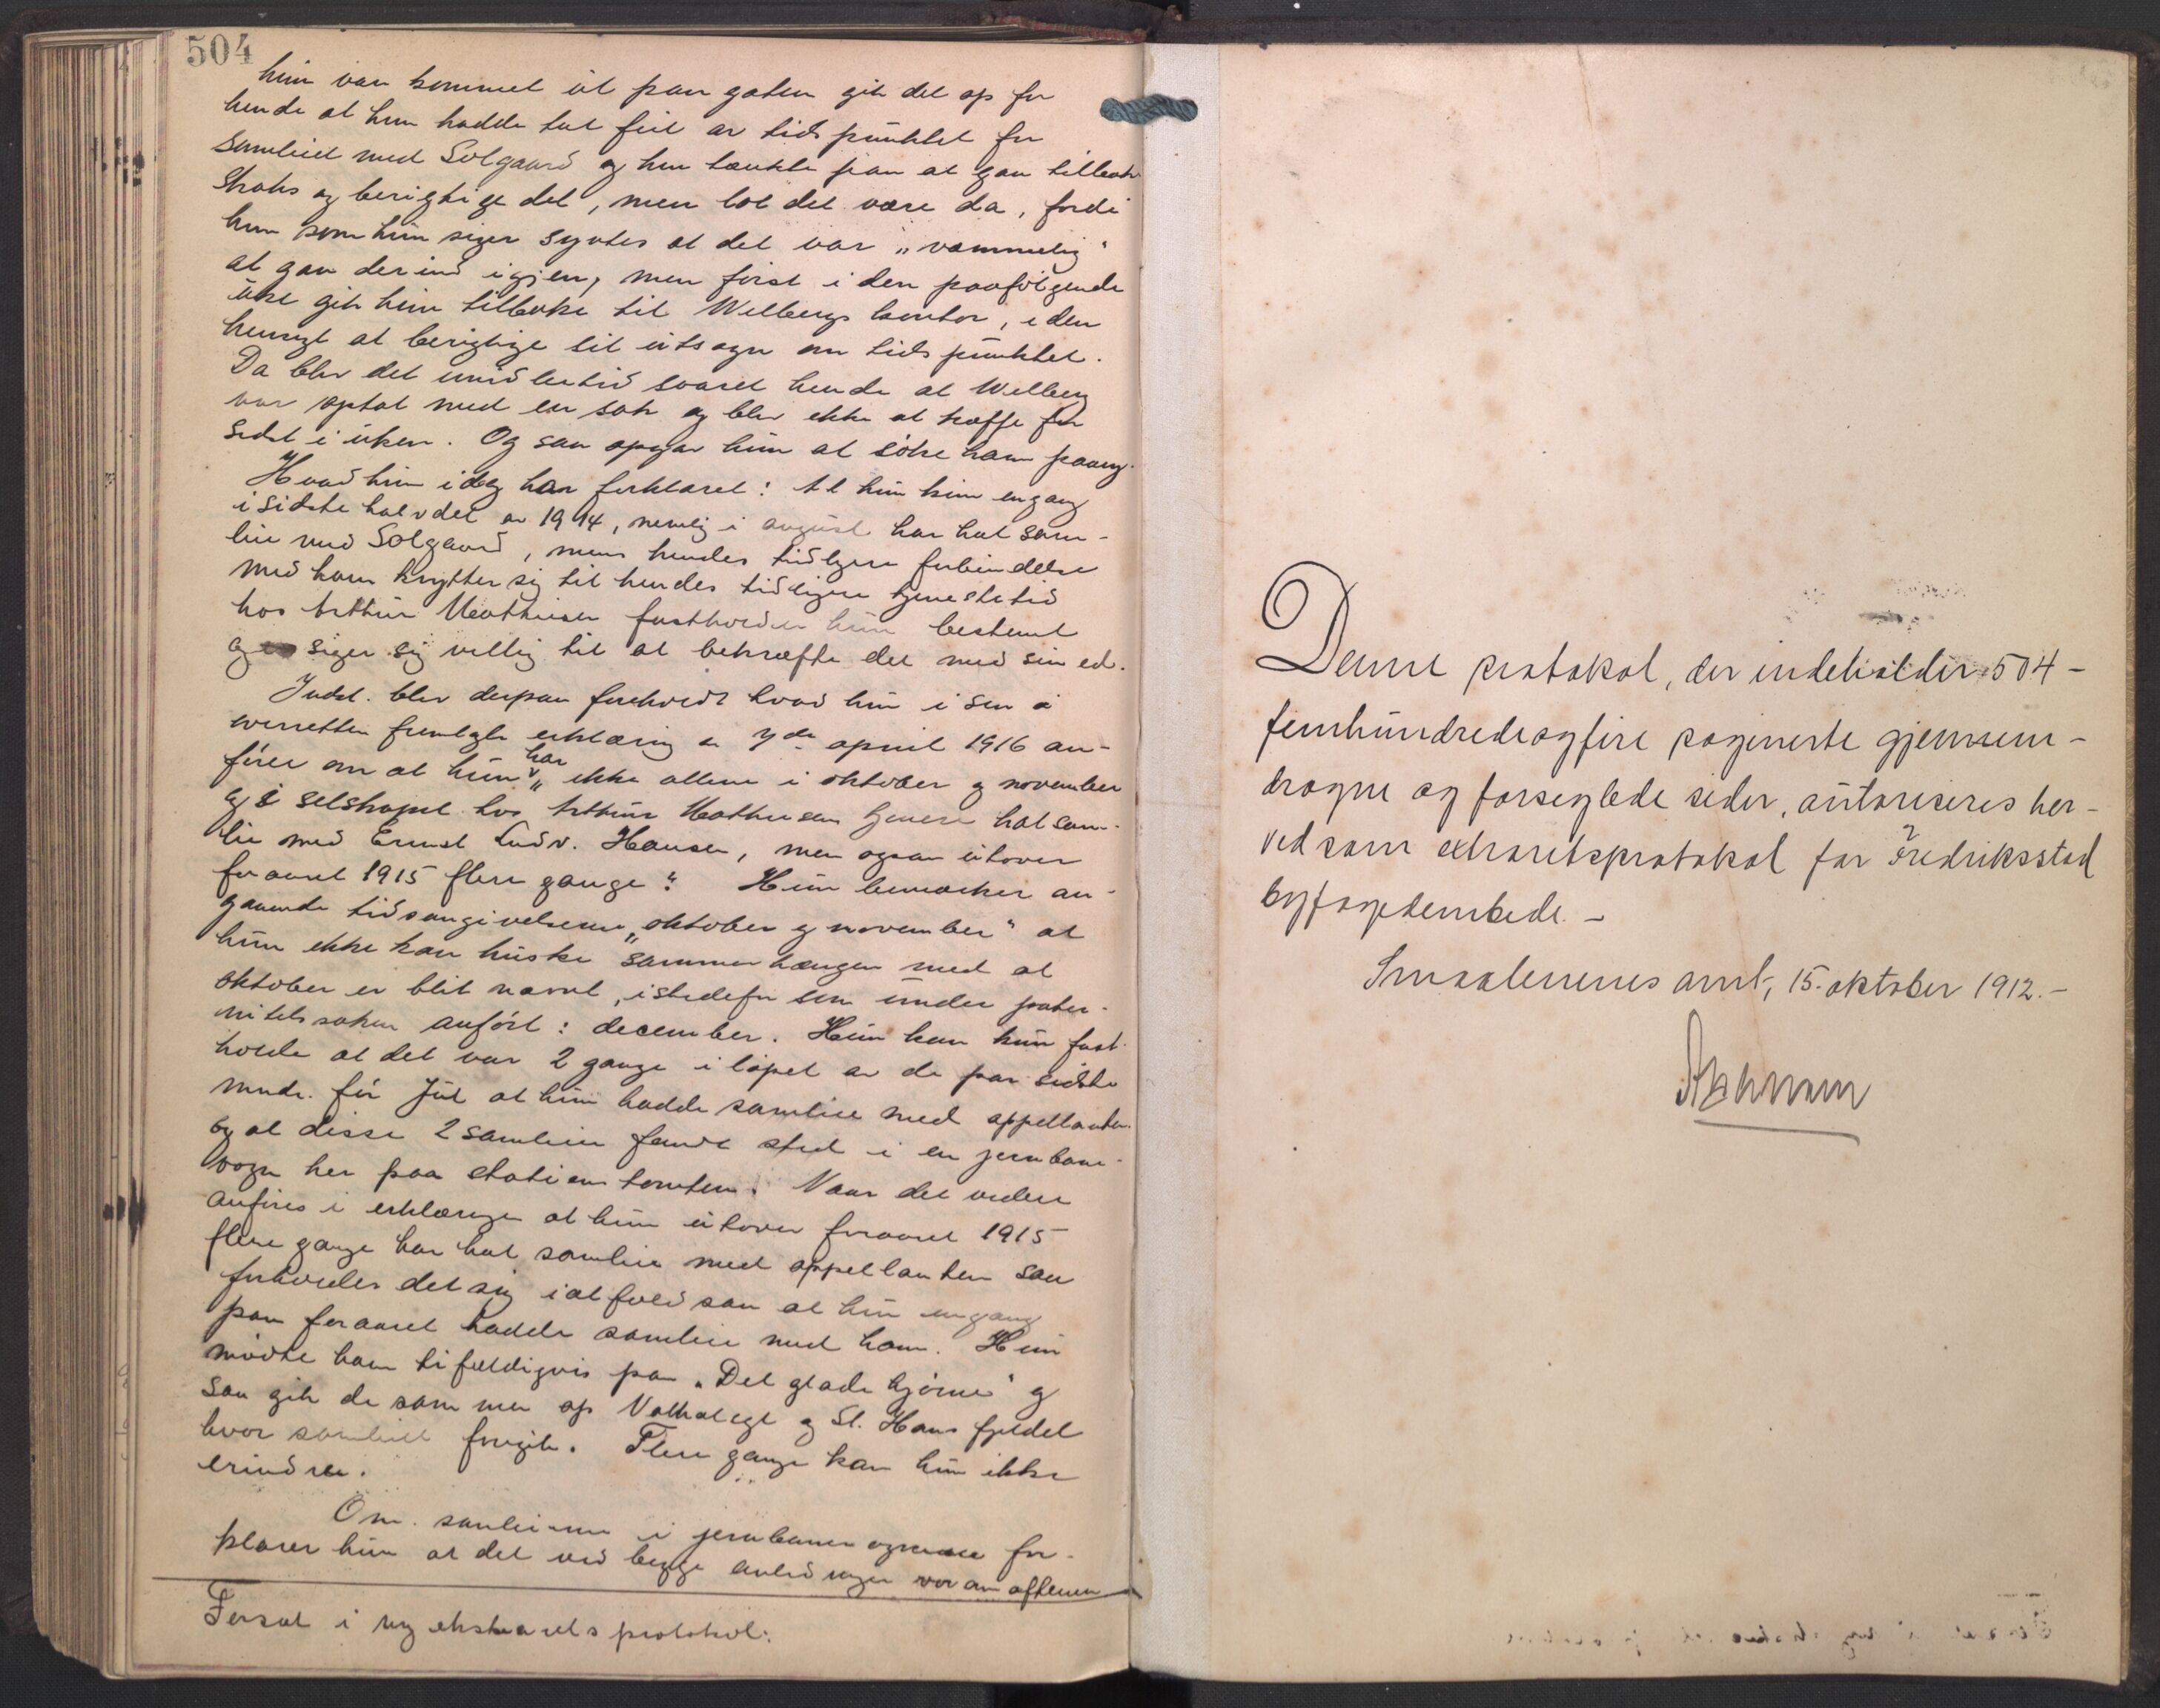 504
hun var kommet ut paa gaten gik det op for
hende at hun hadde tat feil av tidspunktet for
samleiet med Solgaard og hun tænkte paa at gaa tilbake
straks og berigtige det, men lot det være da, fordi
hun som hun siger syntes at det var „vammelig"
at gaa derind igjen, men først i den paafølgende
uke gik hun tilbake til Welbergs kontor, i den
hensigt at berigtige sit utsagn om tidspunktet.
Da blev det imidlertid svaret hende at Welberg
var optat med en sak og blev ikke at træffe før
sidst i uken. Og saa opgav hun at søke ham paany.
Hvad hun idag har forklaret: At hun kun engang
i sidste halvdel av 1914, nemlig i august har hat sam-
leie med Solgaard, mens hendes tidligere forbindelse
med ham knytter sig til hendes tidligere tjenestetid
hos Arthur Mathiesen fastholder hun bestemt
og siger sig villig til at bekræfte det med sin ed.
Indst. blev derpaa foreholdt hvad hun i sin i
overretten fremlagte erklæring av 7de april 1916 an-
fører om at hun „har ikke allene i oktober og november
og i selskapet hos Arthur Mathiesen tjenere hat sam-
leie med Ernst Ludv. Hansen, men ogsaa utover
foraaret 1915 flere gange". Hun bemærker an-
gaaende tidsangivelsene „oktober og november" at
hun ikke kan huske sammenhængen med at
oktober er blit nævnt, istedetfor som under pater-
nitetssaken anført: december. Hun kan kun fast-
holde at det var 2 gange i løpet av de par sidste
mndr. før Jul at hun hadde samleie med appellanten
og at disse 2 samleier fandt sted i en jernbane-
vogn her paa stationstomten. Naar det videre
anføres i erklæringen at hun utover foraaret 1915
flere gange har hat samleie med appellanten saa
forholder det sig ialfald saa at hun engang
paa foraaret hadde samleie med ham. Hun
møtte ham tilfældigvis paa „Det glade hjørne" og
saa gik de sammen op Valhalegt og St. Hans fjeldet
hvor samleiet foregik. Flere gange kan hun ikke
erindre.
Om samleierne i jernbanevognene for-
klarer hun at det ved begge anledninger var om aftenen
Forsat i ny ekstraretsprotokol.
Denne protokol, der indeholder 504 -
femhundredeogfire paginerte gjennem-
dragne og forseglede sider, autoriseres her-
ved som extraretsprotokol for Fredriksstad
byfogedembede. -
Smaalenenes amt, 15. oktober 1912. -